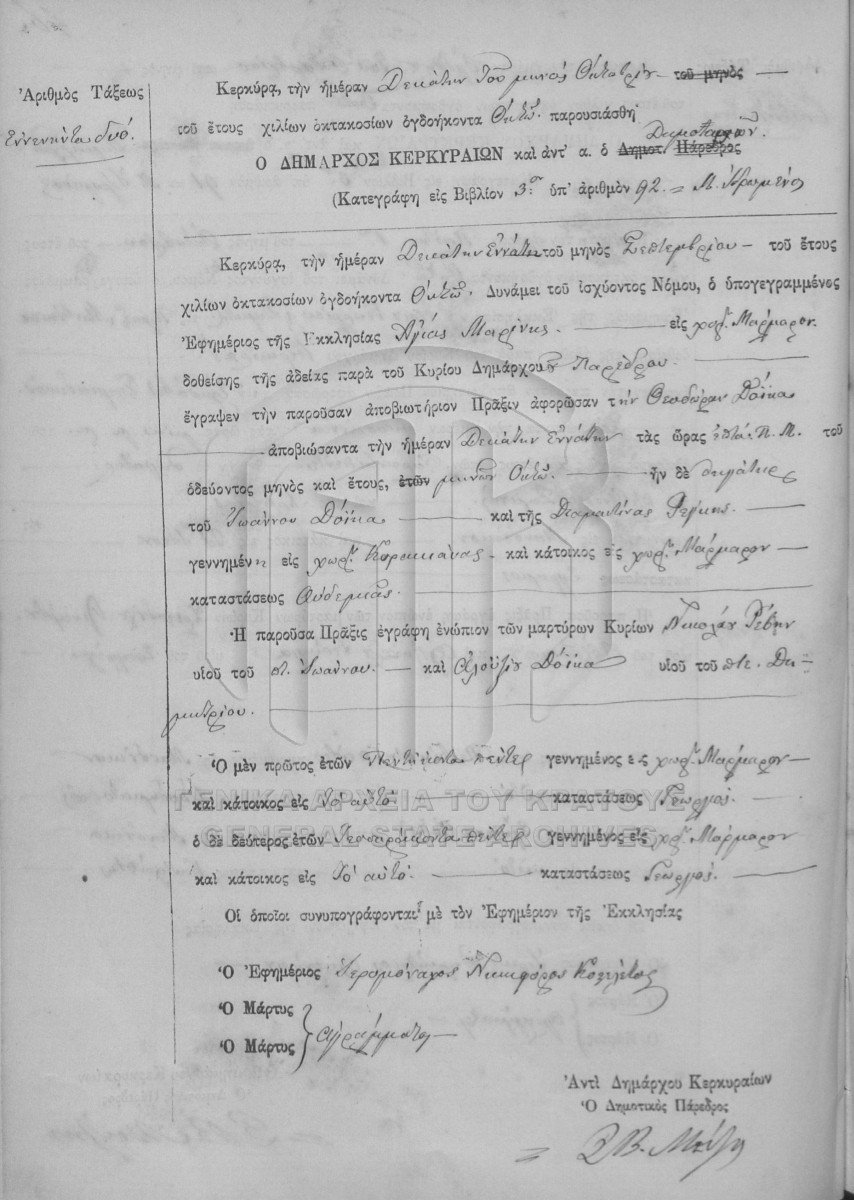 Ἀριθμὸς Τάξεως
Ἐννενήντα δυό.
Κερκύρᾳ, τὴν ἡμέραν Δεκάτην τοῦ μηνὸς Ὀκτωβρίου τοῦ μηνὸς
τοῦ ἔτους χιλίων ὀκτακοσίων ὀγδοήκοντα Ὀκτὼ παρουσιάσθη
Ο ΔΗΜΑΡΧΟΣ ΚΕΡΚΥΡΑΙΩΝ καὶ ἀντ' α. ὁ Δημοτ. Πάρεδρος
(Κατεγράφη εἰς Βιβλίον 3ον ὑπ' ἀριθμὸν 92.
Κερκύρᾳ, τὴν ἡμέραν Δεκάτην Ἐννάτην τοῦ μηνὸς Σεπτεμβρίου τοῦ ἔτους
χιλίων ὀκτακοσίων ὀγδοήκοντα Ὀκτὼ. Δυνάμει τοῦ ἰσχύοντος Νόμου, ὁ ὑπογεγραμμένος
Ἐφημέριος τῆς Ἐκκλησίας Ἁγίας Μαρίνης. εἰς χωρ. Μάρμαρον.
δοθείσης τῆς ἀδείας παρὰ τοῦ Κυρίου Δημάρχου Παρέδρου.
ἔγραψεν τὴν παροῦσαν ἀποβιωτήριον Πρᾶξιν ἀφορῶσαν τὴν Θεοδώραν Δόϊκα
ἀποβιώσαντα τὴν ἡμέραν Δεκάτην Ἐννάτην τὰς ὥρας ἑπτὰ Π. Μ. τοῦ
ὁδεύοντος μηνὸς καὶ ἔτους, ἐτῶν μηνῶν Ὀκτὼ. ἦν δὲ θυγάτηρ
τοῦ Ἰωάννου Δόϊκα καὶ τῆς Διαμαντίνας
γεννημένη εἰς χωρ. καὶ κάτοικος εἰς χωρ. Μάρμαρον
καταστάσεως Οὐδεμιᾶς.
Ἡ παροῦσα Πρᾶξις ἐγράφη ἐνώπιον τῶν μαρτύρων Κυρίων Νικολάου
υἱοῦ τοῦ Ἰωάννου. καὶ Ἀλοϋζίου Δόϊκα υἱοῦ τοῦ Δη-
μητρίου.
Ὁ μὲν πρῶτος ἐτῶν Πεντήκοντα πέντε γεννημένος εἰς χωρ. Μάρμαρον
καὶ κάτοικος εἰς Τὸ αὐτὸ. καταστάσεως Γεωργός.
ὁ δὲ δεύτερος ἐτῶν Τεσσαράκοντα πέντε γεννημένος εἰς χωρ. Μάρμαρον
καὶ κάτοικος εἰς Τὸ αὐτὸ. καταστάσεως Γεωργός.
Οἱ ὁποῖοι συνυπογράφονται μὲ τὸν Ἐφημέριον τῆς Ἐκκλησίας
Ὁ Ἐφημέριος Ἱερομόναχος Νικηφόρος
Ὁ Μάρτυς
Ὁ Μάρτυς
Ἀγράμματοι
Ἀντὶ Δημάρχου Κερκυραίων
Ὁ Δημοτικὸς Πάρεδρος
ΓΕΝΙΚΑ ΑΡΧΕΙΑ ΤΟΥ ΚΡΑΤΟΥΣ
GENERAL STATE ARCHIVES